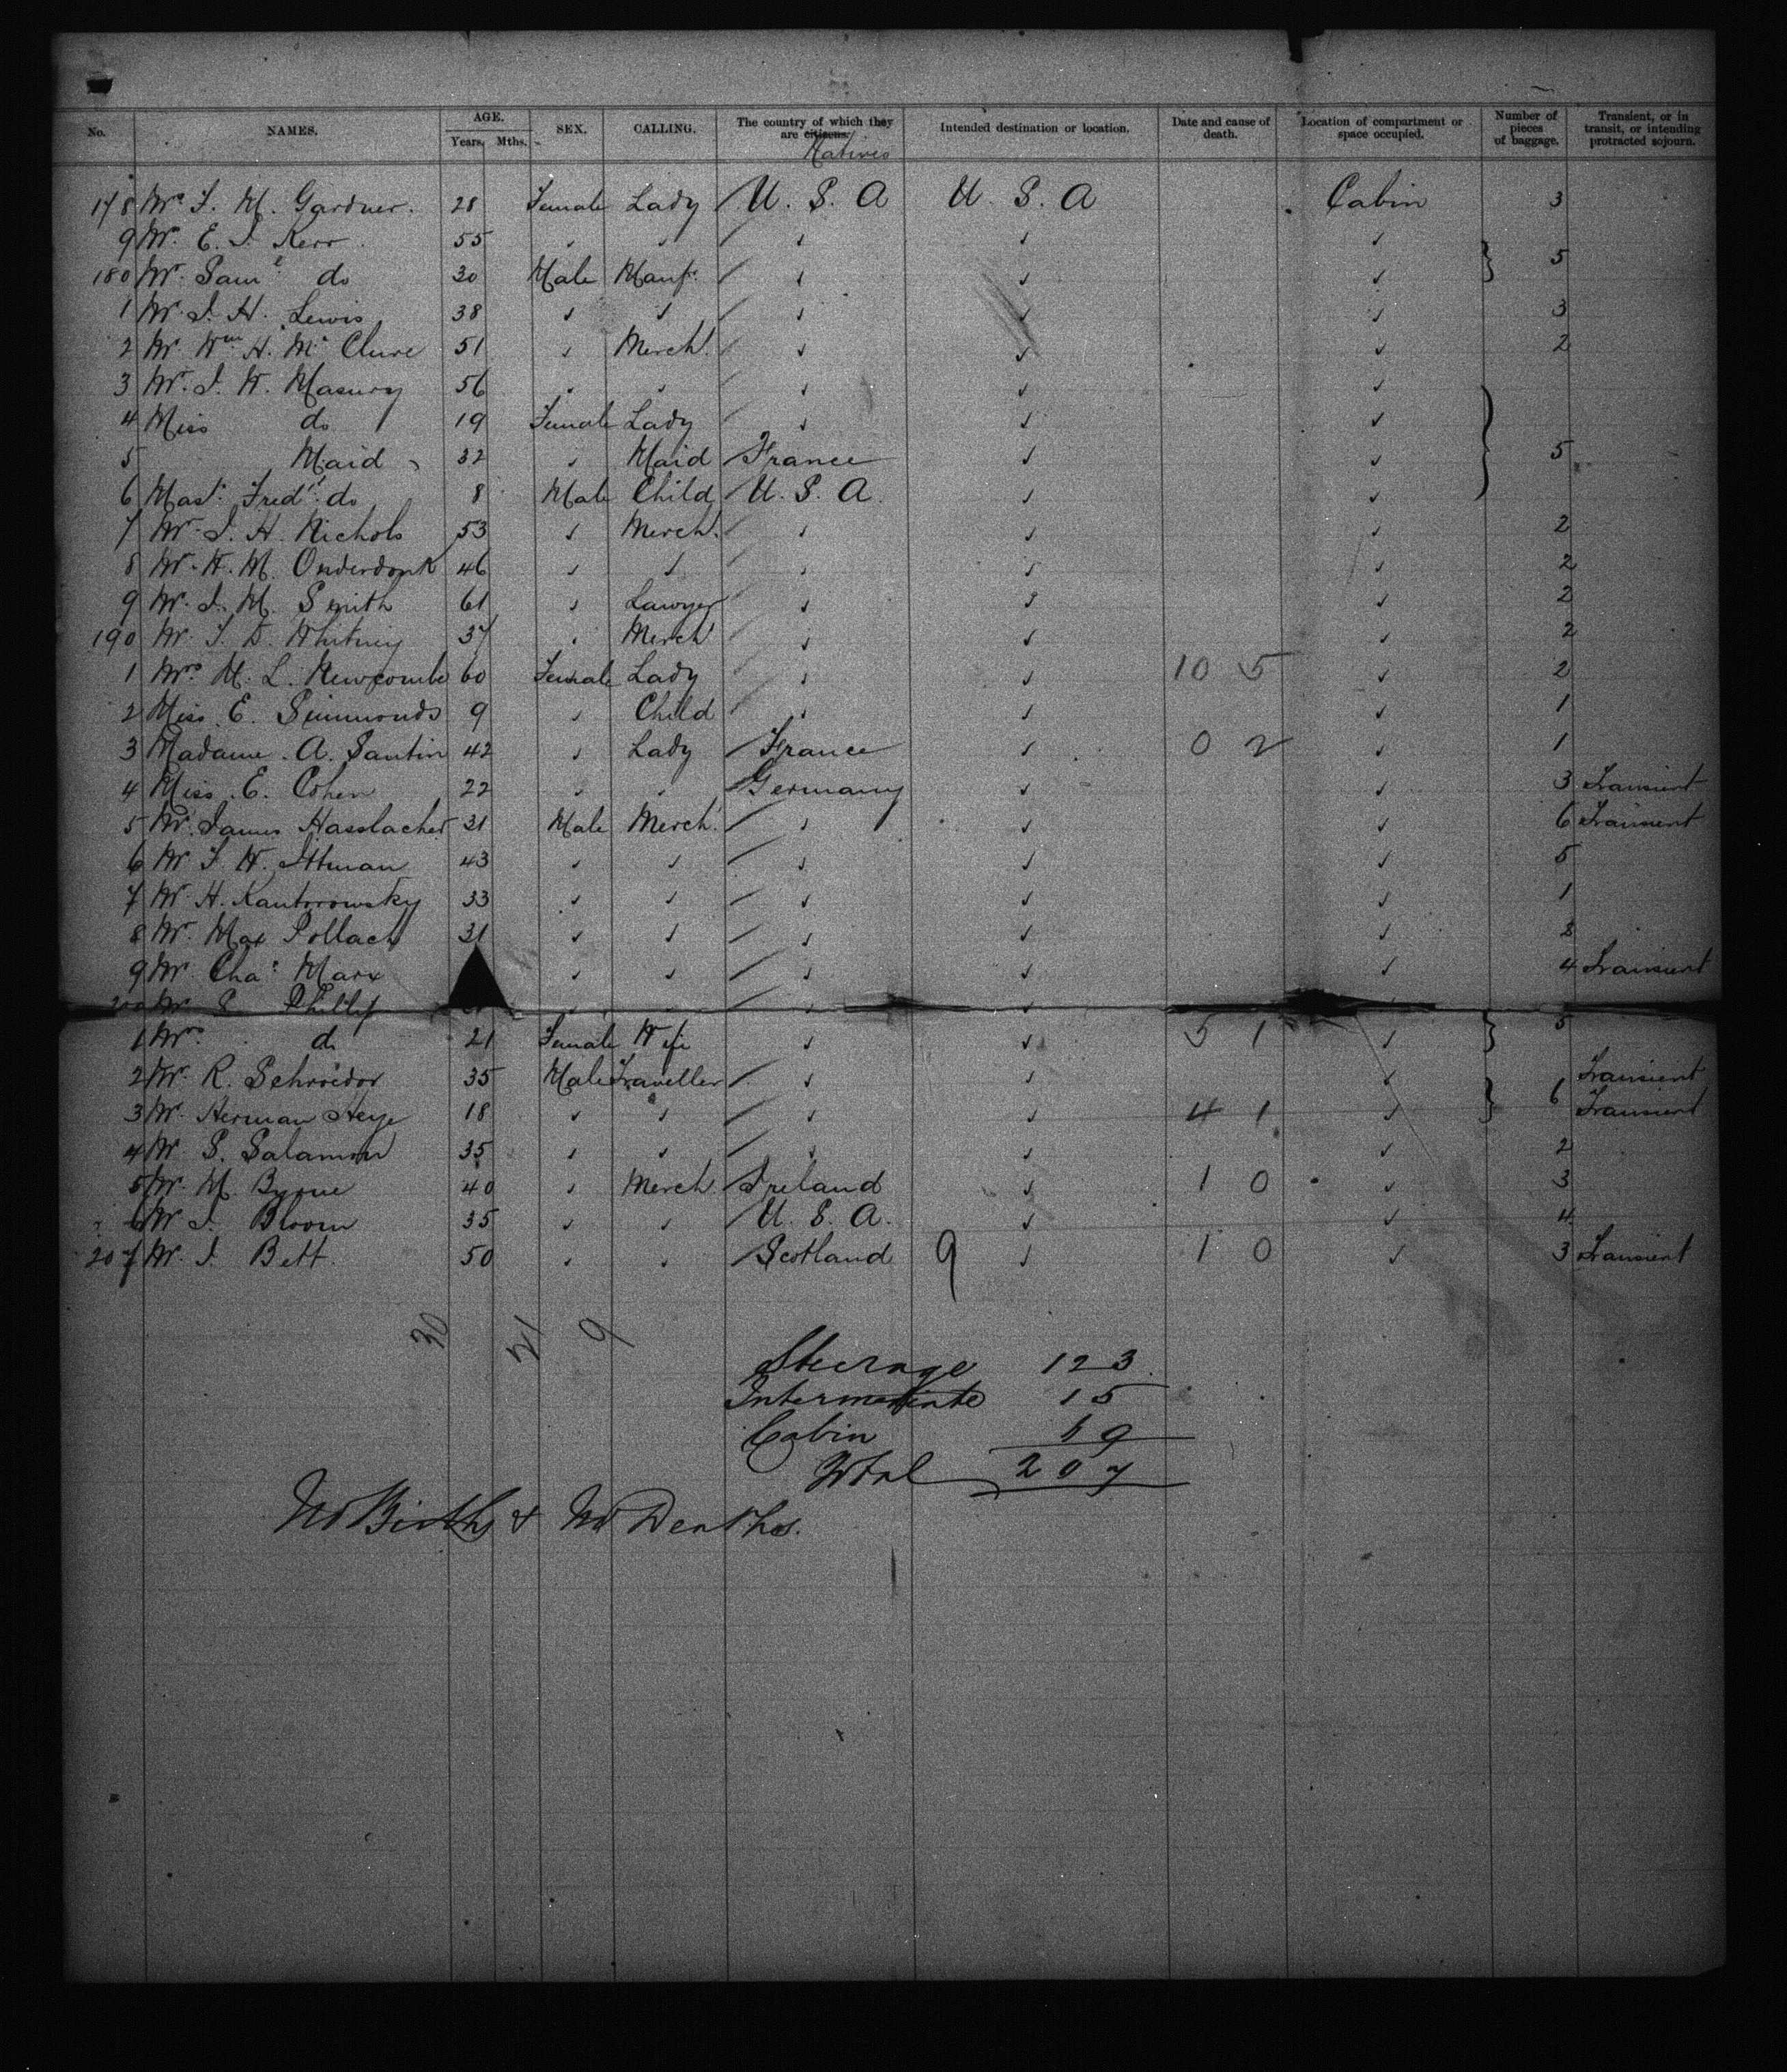 No. NAMES. AGE. Years. Mths. SEX. CALLING. The country of which they are citizens. Natives Intended destination or location. Date and cause of death. Location of compartment or space occupied. Number of pieces of baggage. Transient, or in transit, or intending protracted sojourn.
178 Mrs F. M. Gardner. 28 Female Lady U. S. A U. S. A Cabin 3
9 E. J. Kerr 55 ✓ ✓ ✓ ✓ ✓
180 Mr. Saml do 30 Male Manfr ✓ ✓ ✓ } 5
1 Mr J. H. Lewis 38 ✓ ✓ ✓ ✓ ✓ 3
2 Mr Wm H. Mc Clure 51 ✓ Merch. ✓ ✓ ✓ 2
3 Mr. J. W. Masury 56 ✓ ✓ ✓ ✓ ✓
4 Miss do 19 Female Lady ✓ ✓ ✓
5 Maid 32 ✓ Maid France ✓ ✓ } 5
6 Mastr Fredk do 8 Male Child U. S. A. ✓ ✓
7 Mr. J. H. Nichols 53 ✓ Merch. ✓ ✓ ✓ 2
8 Mr. W. M. Onderdonk 46 ✓ ✓ ✓ ✓ ✓ 2
9 Mr. J. M. Smith 61 ✓ Lawyer ✓ ✓ ✓ 2
190 Mr. J. D. Whitney 37 ✓ Merch ✓ ✓ ✓ 2
1 Mrs M. L. Newcombe 60 Female Lady ✓ ✓ 10 5 ✓ 2
2 Miss E. Simmonds 9 ✓ Child ✓ ✓ ✓ 1
3 Madame A. Santin 42 ✓ Lady France ✓ 0 2 ✓ 1
4 Miss E. Cohen 22 ✓ ✓ Germany ✓ ✓ 3 Transient
5 Mr. James Hasslacher 31 Male Merch. ✓ ✓ ✓ 6 Transient
6 Mr F. W. 43 ✓ ✓ ✓ ✓ ✓ 5
7 Mr. H. Kantorowsky 33 ✓ ✓ ✓ ✓ ✓ 1
8 Mr. Max Pollack 31 ✓ ✓ ✓ ✓ ✓ 2
9 Mr Chas Marx ✓ ✓ ✓ ✓ ✓ 4 Transient
200 Mr S. Phillip ✓ ✓ ✓ ✓ ✓
1 Mrs do 21 Female Wife ✓ ✓ 5 1 ✓ } 5
2 Mr. R. Schroedor 35 Male Traveller ✓ ✓ ✓ Transient
3 Mr. Herman Heye 18 ✓ ✓ ✓ ✓ 4 1 ✓ } 6 Transient
4 Mr. S. Salamon 35 ✓ ✓ ✓ ✓ ✓ 2
5 Mr. M. Byrne 40 ✓ Merch Ireland ✓ 1 0 ✓ 3
6 Mr J. Bloom 35 ✓ ✓ U. S. A. ✓ ✓ 4
207 Mr. J. Bett. 50 ✓ ✓ Scotland 9 ✓ 1 0 ✓ 3 Transient
30 21 9
Steerage 123
Intermediate 15
Cabin 69
Total 207
No Births & No Deaths.